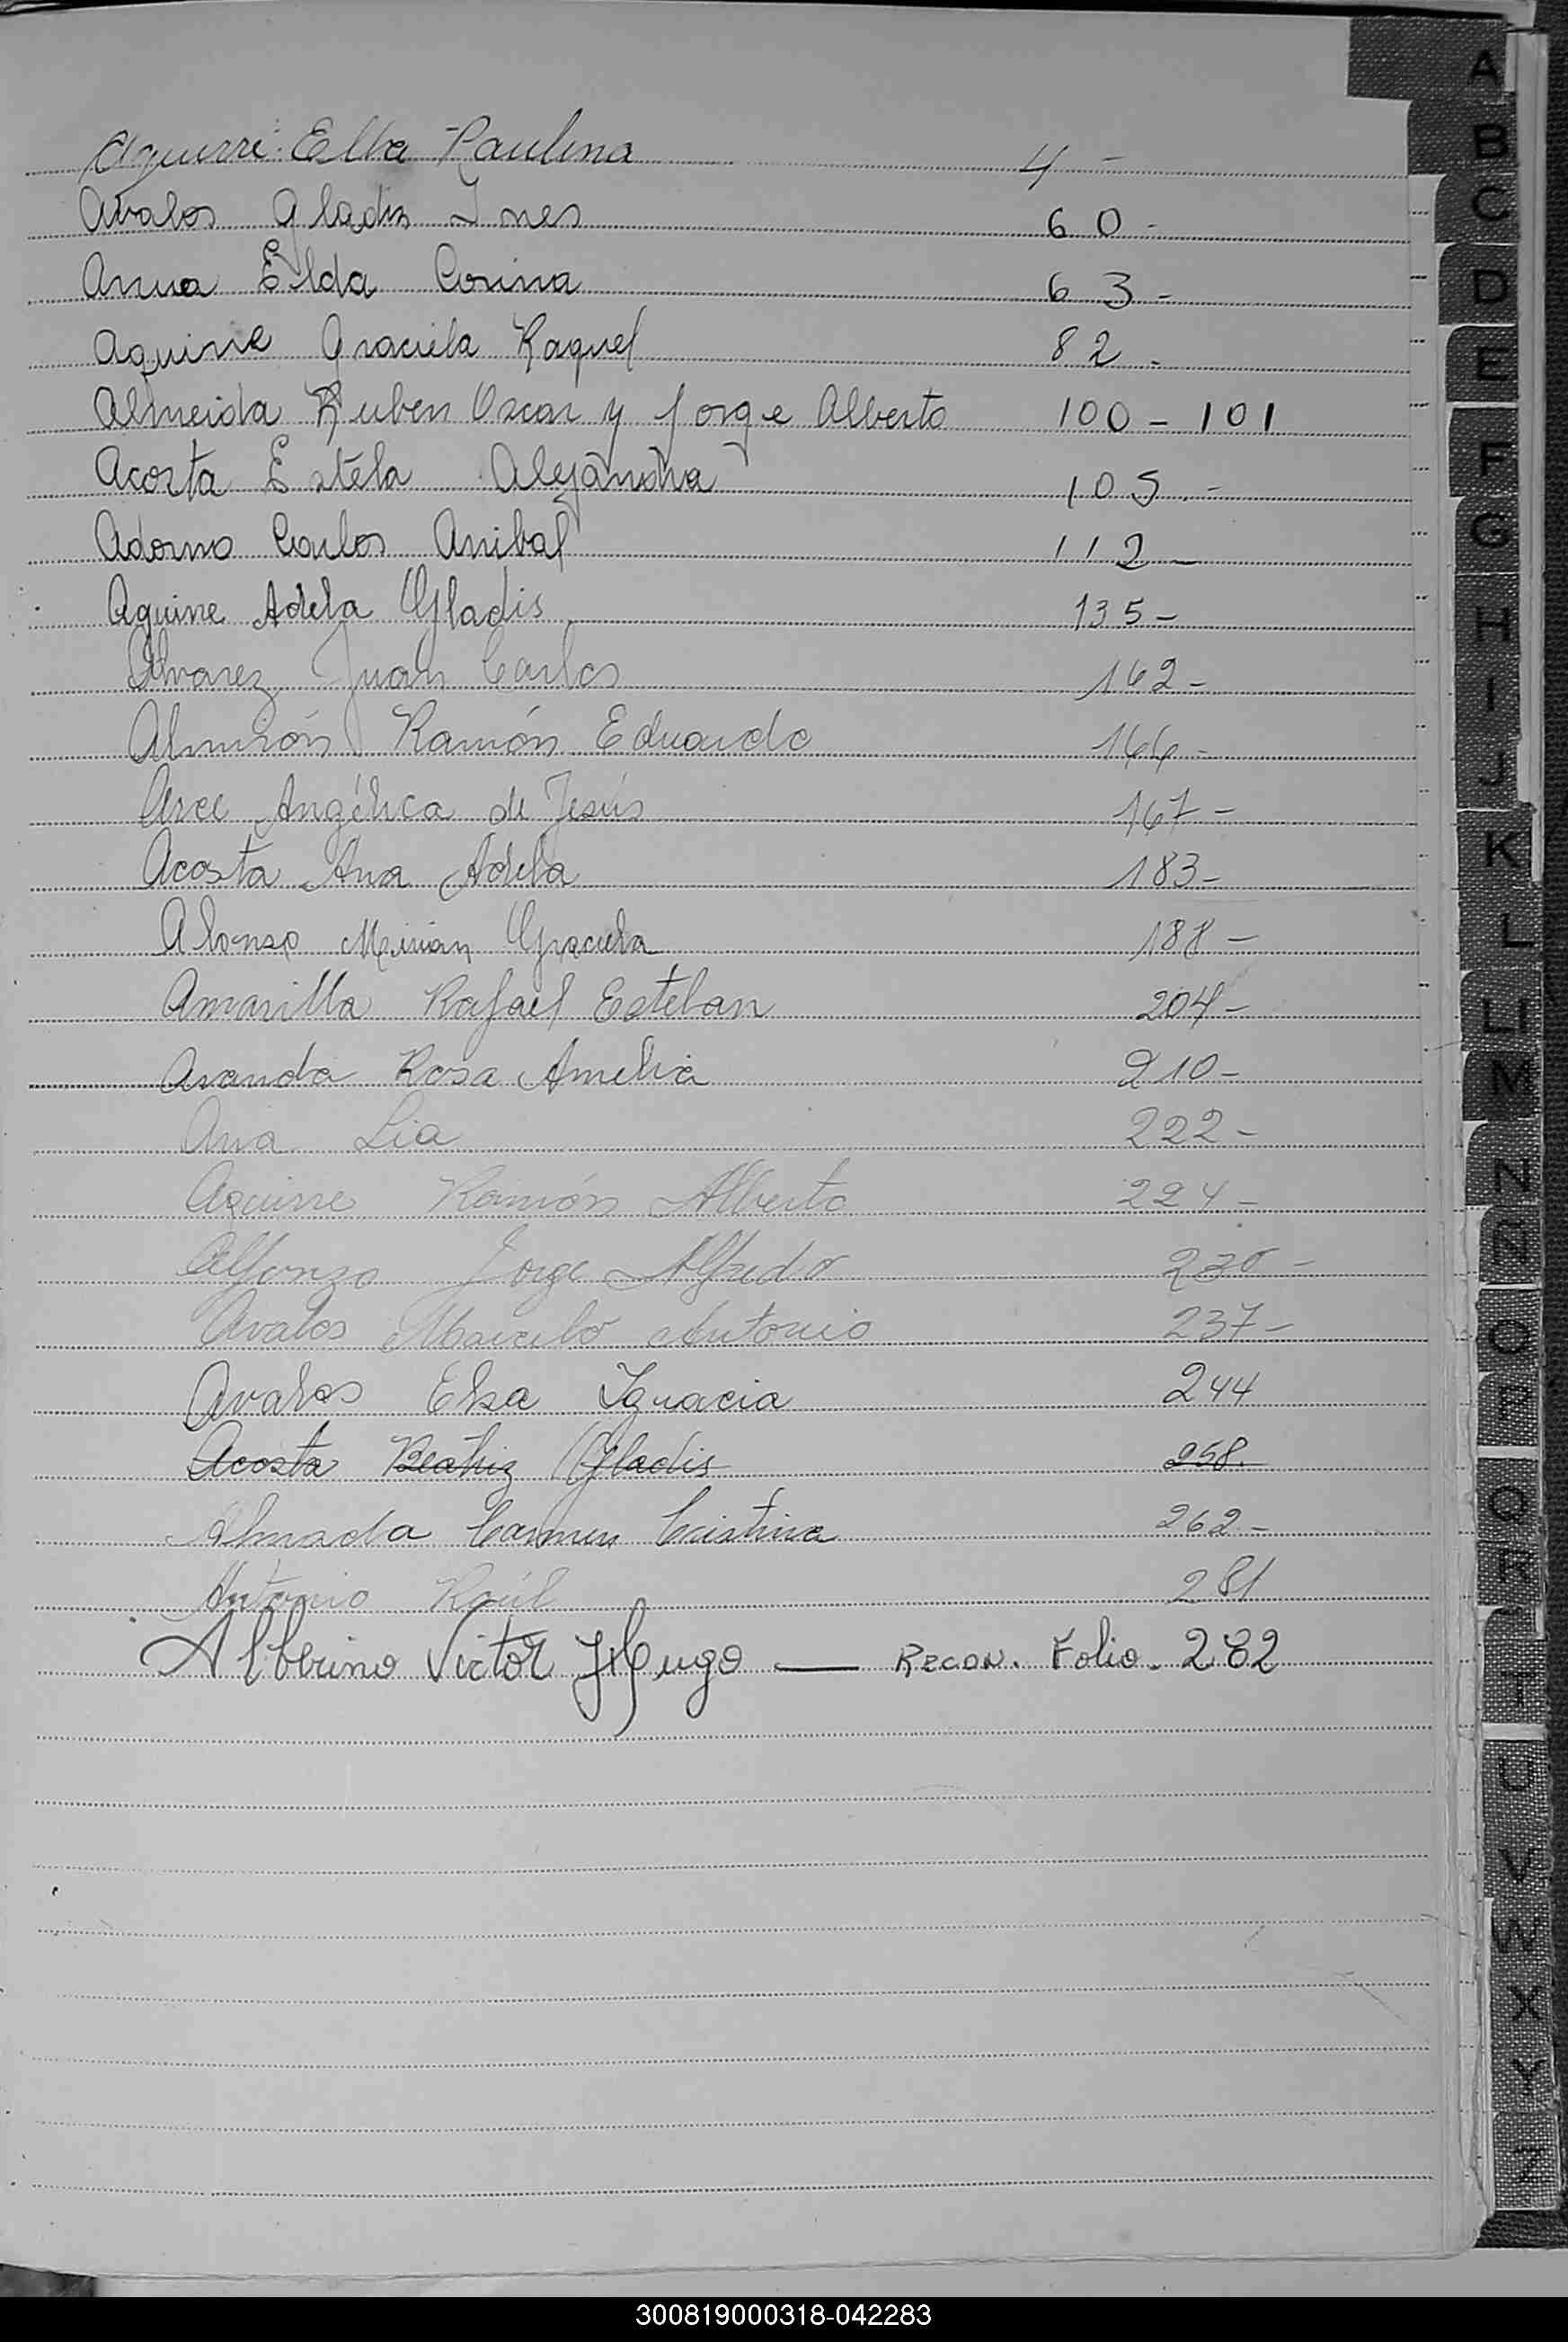 Aguirre Elba Paulina 4 -
Avalos Gladis Ines 60 -
Elda Corina 63 -
Aguirre Graciela Raquel 82 -
Almeida Ruben Oscar y Jorge Alberto 100 - 101
Acosta Estela Alejandra 105 -
Adorno Carlos Anibal 112 -
Aguirre Adela Gladis 135 -
Alvarez Juan Carlos 162 -
Almirón Ramón Eduardo 166 -
Arce Angélica de Jesús 167 -
Acosta Ana Adela 183 -
Alonso Mirian Graciela 188 -
Amarilla Rafael Esteban 204 -
Aranda Rosa Amelia 210 -
Lia 222 -
Aguirre Ramón Alberto 224 -
Alfonzo Jorge Alfredo 230 -
Avalos Marcelo Antonio 237 -
Avalos Elsa Ignacia 244
Acosta Beatriz Gladis 258.
Almada Carmen Cristina 262 -
Antonio Raúl 281
Albberino Victor Hugo — RECON. Folio. 282
A
B
C
D
E
F
G
H
I
J
K
L
Ll
M
N
Ñ
O
P
Q
R
T
U
V
W
X
Y
Z
300819000318-042283